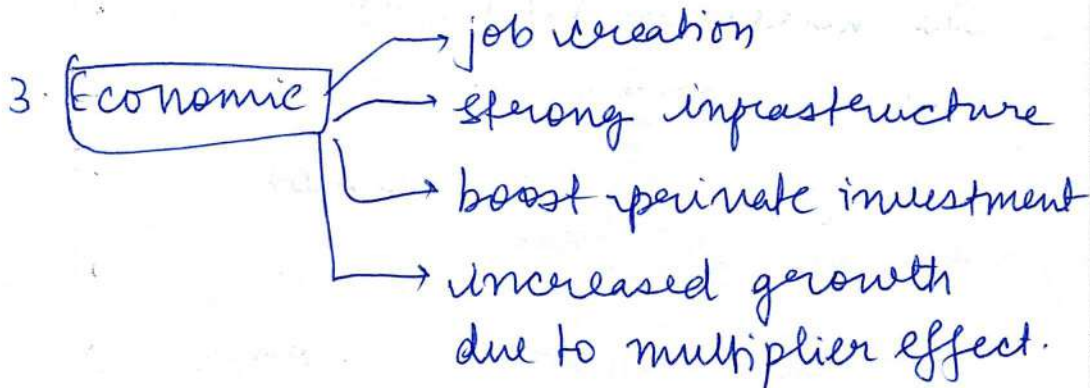 job creation
3. Economic
strong infrastructure
boost private investment
increased growth
due to multiplier effect.